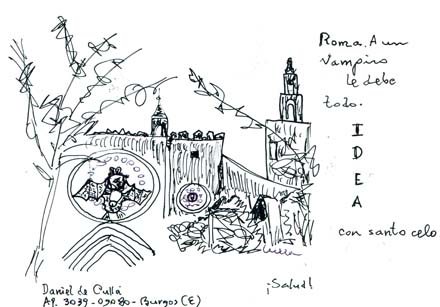 Roma. A un
vampiro
le debe
todo.
I
D
E
A
con santo celo
¡Salud!
Daniel de Cullá
Ap. 3039-09080-Burgos (E)